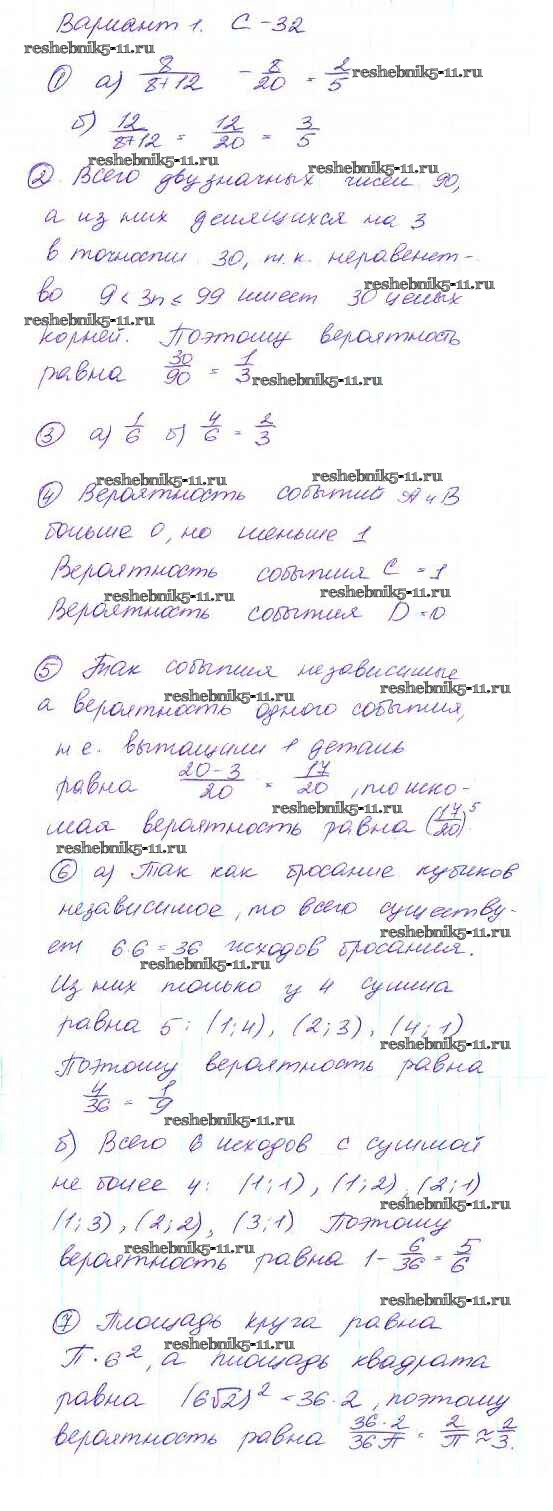 Вариант 1. С-32
reshebnik5-11.ru
① а) 8/8+12 - 8/20 = 2/5
б) 12/8+12 = 12/20 = 3/5
reshebnik5-11.ru reshebnik5-11.ru
② Всего двузначных чисел 90,
а из них делящихся на 3
в точности 30, т.к. неравенст-
reshebnik5-11.ru
во 9 < 3n ≤ 99 имеет 30 целых
reshebnik5-11.ru
корней. Поэтому вероятность
равна 30/90 = 1/3
reshebnik5-11.ru
③ а) 1/6 б) 4/6 = 2/3
reshebnik5-11.ru reshebnik5-11.ru
④ Вероятность событий А и В
больше 0, но меньше 1
Вероятность события С = 1
reshebnik5-11.ru
Вероятность события D = 0
⑤ Так события независимые
reshebnik5-11.ru reshebnik5-11.ru
а вероятность одного события,
т.е. вытащили 1 деталь
равна 20-3/20 = 17/20, то иско-
reshebnik5-11.ru
мая вероятность равна (17/20)⁵
reshebnik5-11.ru
⑥ а) Так как бросание кубиков
независимое, то всего существу-
reshebnik5-11.ru
ет 6 6 = 36 исходов бросания.
reshebnik5-11.ru
Из них только у 4 сумма
равна 5: (1;4), (2;3), (4;1)
Поэтому вероятность равна
4/36 = 1/9
reshebnik5-11.ru
б) Всего 6 исходов с суммой
не более 4: (1;1), (1;2), (2;1)
reshebnik5-11.ru
(1;3), (2;2), (3;1) Поэтому
reshebnik5-11.ru
вероятность равна 1 - 6/36 = 5/6
reshebnik5-11.ru
⑦ Площадь круга равна
reshebnik5-11.ru
П·6², а площадь квадрата
равна (6√2)² = 36·2, поэтому
reshebnik5-11.ru
вероятность равна 36·2/36П = 2/П ≈ 2/3.